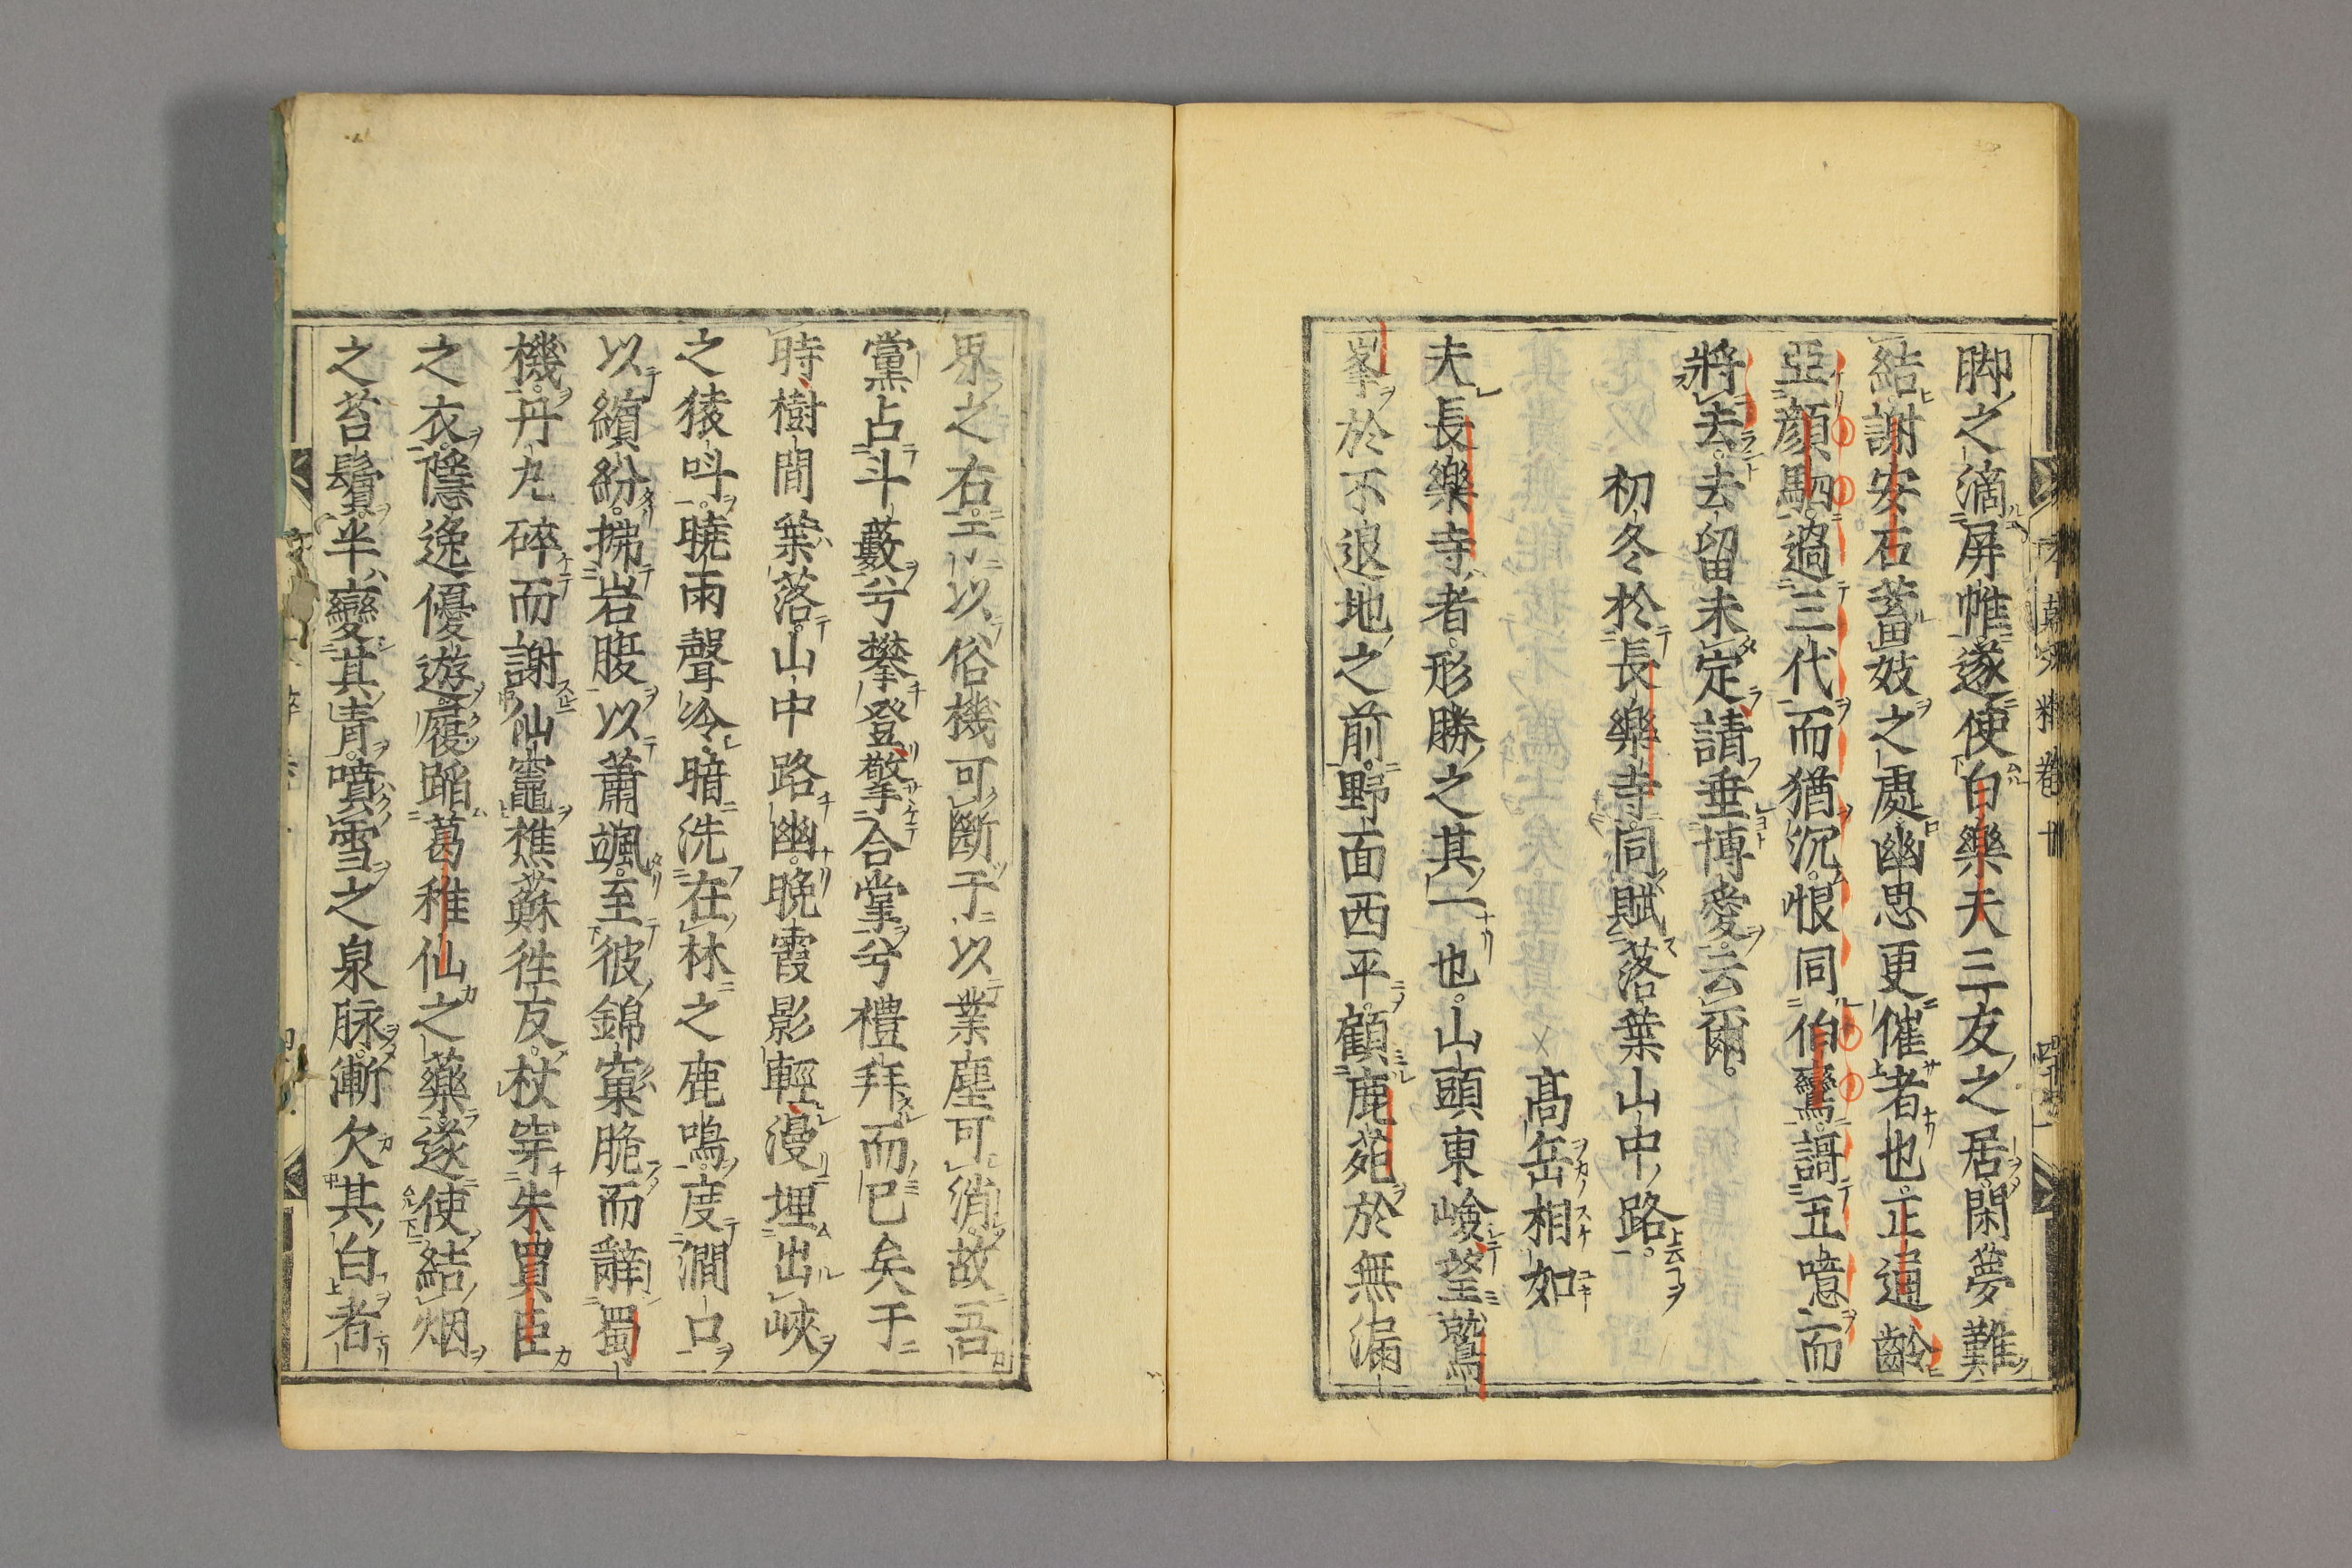 脚之滴屏帷遂使白樂天三友之居閑夢難
結謝安石蓄妓之處幽思更催者也正通齡
亞顔駟過三代而猶沉恨同伯鸞謌五噫而
將去去留未定請垂博愛云爾
初冬於長樂寺同賦落葉山中路
高岳相如
夫長樂寺者形勝之其一也山頭東嶮望鷲
峯於不退地之前野面西平顧鹿苑於無漏
界之右是以俗機可斷于以業塵可消故吾
黨占斗藪兮攀登擎合掌兮禮拜而已矣于
時樹間葉落山中路幽晩霞影輕漫埋出峽
之猿叫曉雨聲冷暗洗在林之鹿鳴度澗口
以繽紛拂岩腹以蕭颯至彼錦窠脆而辭蜀
機丹丸碎而謝仙竈樵蘇徃反杖穿朱買臣
之衣隱逸優遊履踏葛稚仙之藥遂使結烟
之苔鬚半變其青噴雪之泉脉漸欠其白者